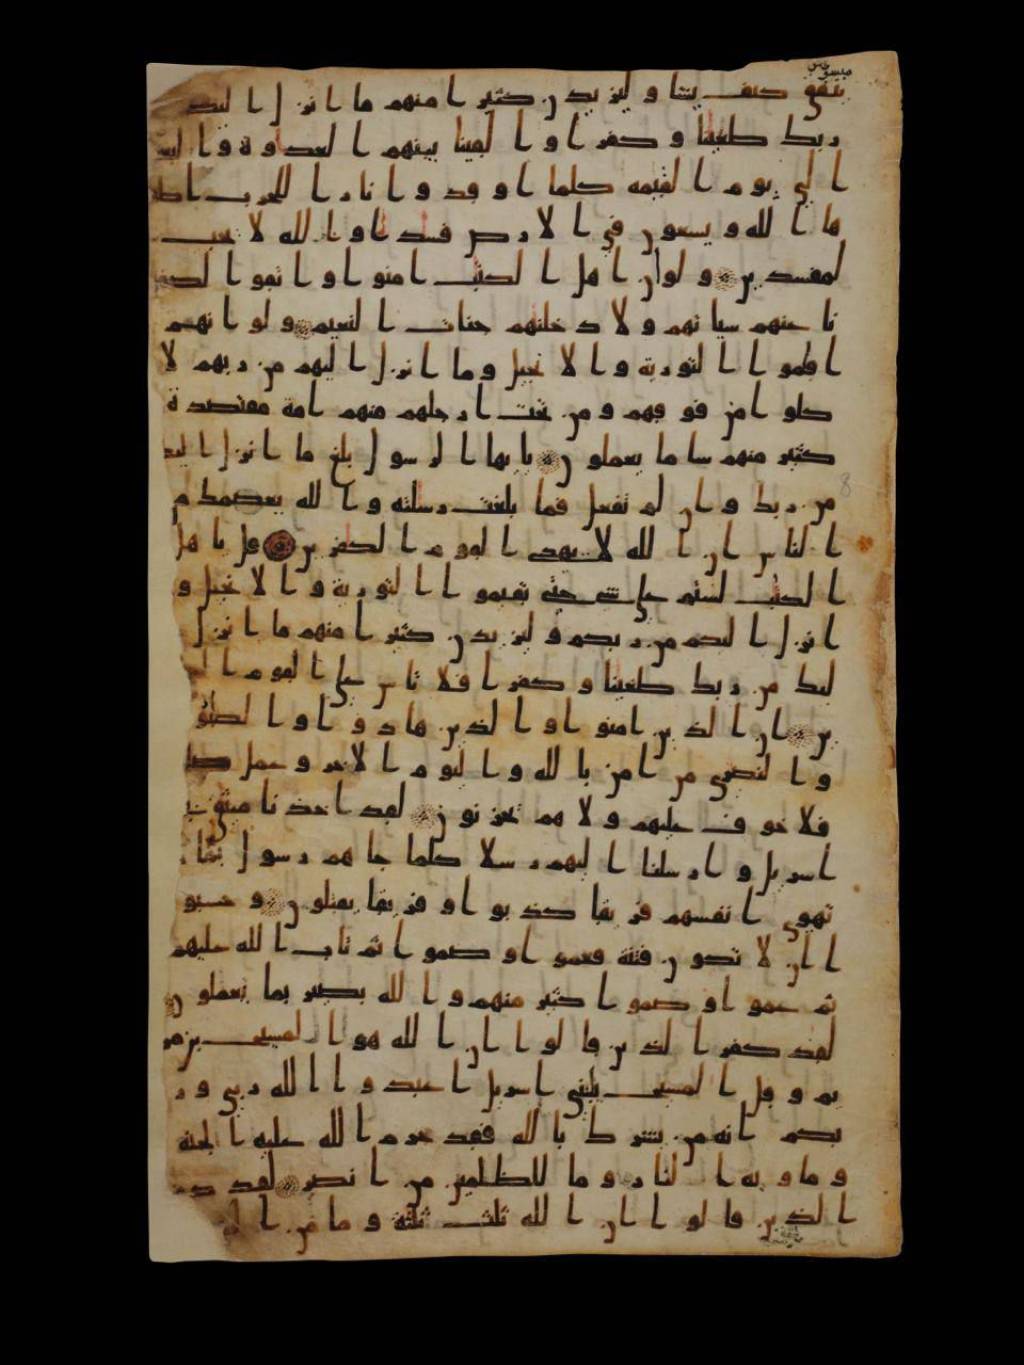 ينفق كيف يشا وليزيدن كثيرا منهم ما انزل اليك
ربك طغينا وكفرا والقينا بينهم العدوة وا لبغ
الى يوم القيمه كلما اوقدوا نارا للحرب اطف
ها الله ويسعون في الارض فسدا والله لا يحب
لمفسدين ولو ان اهل الكتب امنوا واتقوا لكفر
نا عنهم سياتهم ولادخلنهم جنات النعيم ولو انهم
اقموا التورية والانجيل وما انزل اليهم من ربهم لا
كلوا من فوقهم ومن تحت ارجلهم منهم امة مقتصدة
كثير منهم سا ما يعملون يايها الرسول بلغ ما انزل اليك
من ربك وان لم تفعل فما بلغت رسلته والله يعصمك م
الناس ان الله لا يهدى القوم الكفرين قل ياهل
الكتب لستم على شى حتى تقيموا التورية والانجيل و
انزل اليكم من ربكم وليزيدن كثيرا منهم ما انزل
ليك من ربك طغينا وكفرا فلا تاس على القوم ال
ين ان الذين امنوا والذين هادوا والصبو
والنصرى من امن بالله واليوم الاخر وعمل صلحا
فلا خوف عليهم ولا هم يحزنون لقد اخذنا ميثق
اسريل وارسلنا اليهم رسلا كلما جاهم رسول بما
تهوى انفسهم فريقا كذبوا وفريقا يقتلون وحسبو
ا الا تكون فتنة فعموا وصموا ثم تاب الله عليهم
ثم عموا وصموا كثير منهم والله بصير بما يعملون
لقد كفر الذين قالوا ان الله هو المسيح بن مر
يم وقل المسيح يبنى اسريل اعبدوا الله ربى ور
بكم انه من يشرك بالله فقد حرم الله عليه الجنة
وماويه النار وما للظلمين من انصر لقد ك
الذين قالوا ان الله ثلث ثلثة وما من ا